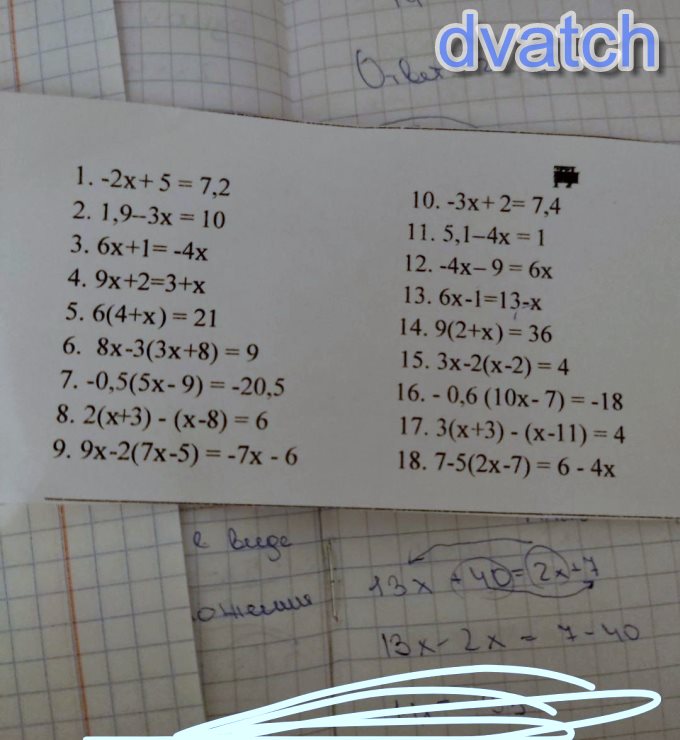 dvatch
Ответ
1. -2x+ 5 = 7,2
2. 1,9–3x = 10
3. 6x+1= -4x
4. 9x+2=3+x
5. 6(4+x) = 21
6. 8x-3(3x+8) = 9
7. -0,5(5x- 9) = -20,5
8. 2(x+3) - (x-8) = 6
9. 9x-2(7x-5) = -7x - 6
10. -3x+ 2= 7,4
11. 5,1–4x = 1
12. -4x– 9 = 6x
13. 6x-1=13-x
14. 9(2+x) = 36
15. 3x-2(x-2) = 4
16. - 0,6 (10x- 7) = -18
17. 3(x+3) - (x-11) = 4
18. 7-5(2x-7) = 6 - 4x
в виде
13x + 40 = 2x + 7
13x - 2x = 7 - 40